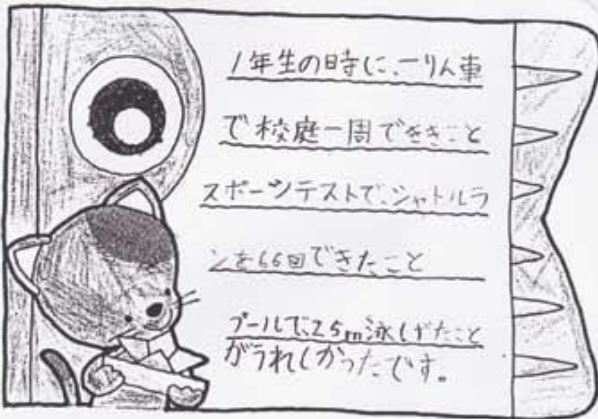 1年生の時に、一りん車
で校庭一周できたこと
スポーツテストで、シャトルラ
ンを66回できたこと
プールで、25m泳しげたこと
がうれしかったです。